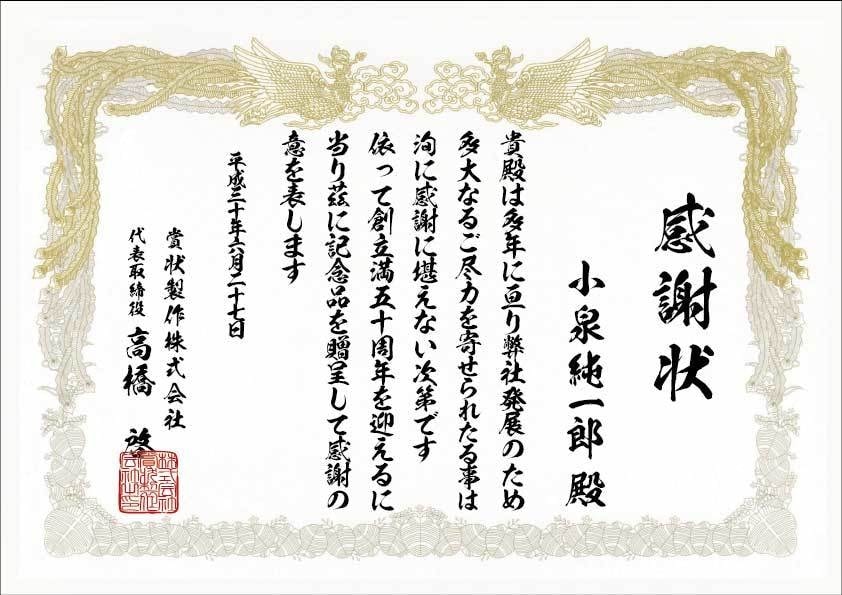 感謝状
小泉純一郎 殿
貴殿は多年に亘り弊社発展のため
多大なるご尽力を寄せられたる事は
洵に感謝に堪えない次第です
依って創立満五十周年を迎えるに
当り茲に記念品を贈呈して感謝の
意を表します
平成三十年六月二十七日
賞状製作株式会社
代表取締役 高橋 啓
株式会社
賞状製作